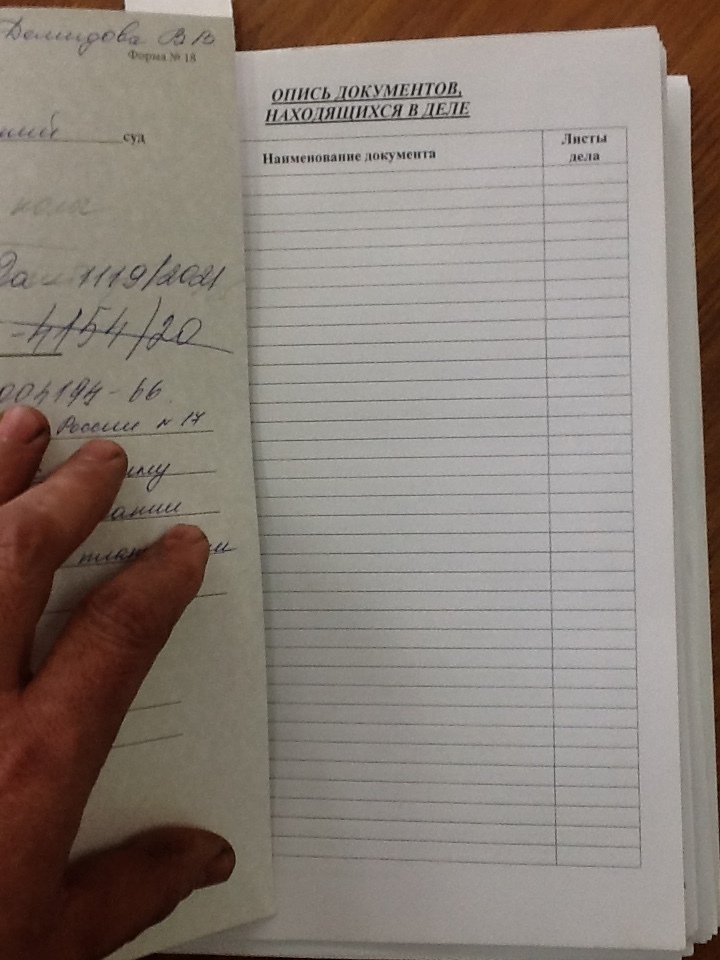 Демидова В В
Форма № 18
суд
2а 1119/2021
-4154/20
России № 17
ОПИСЬ ДОКУМЕНТОВ,
НАХОДЯЩИХСЯ В ДЕЛЕ
Наименование документа
Листы
дела